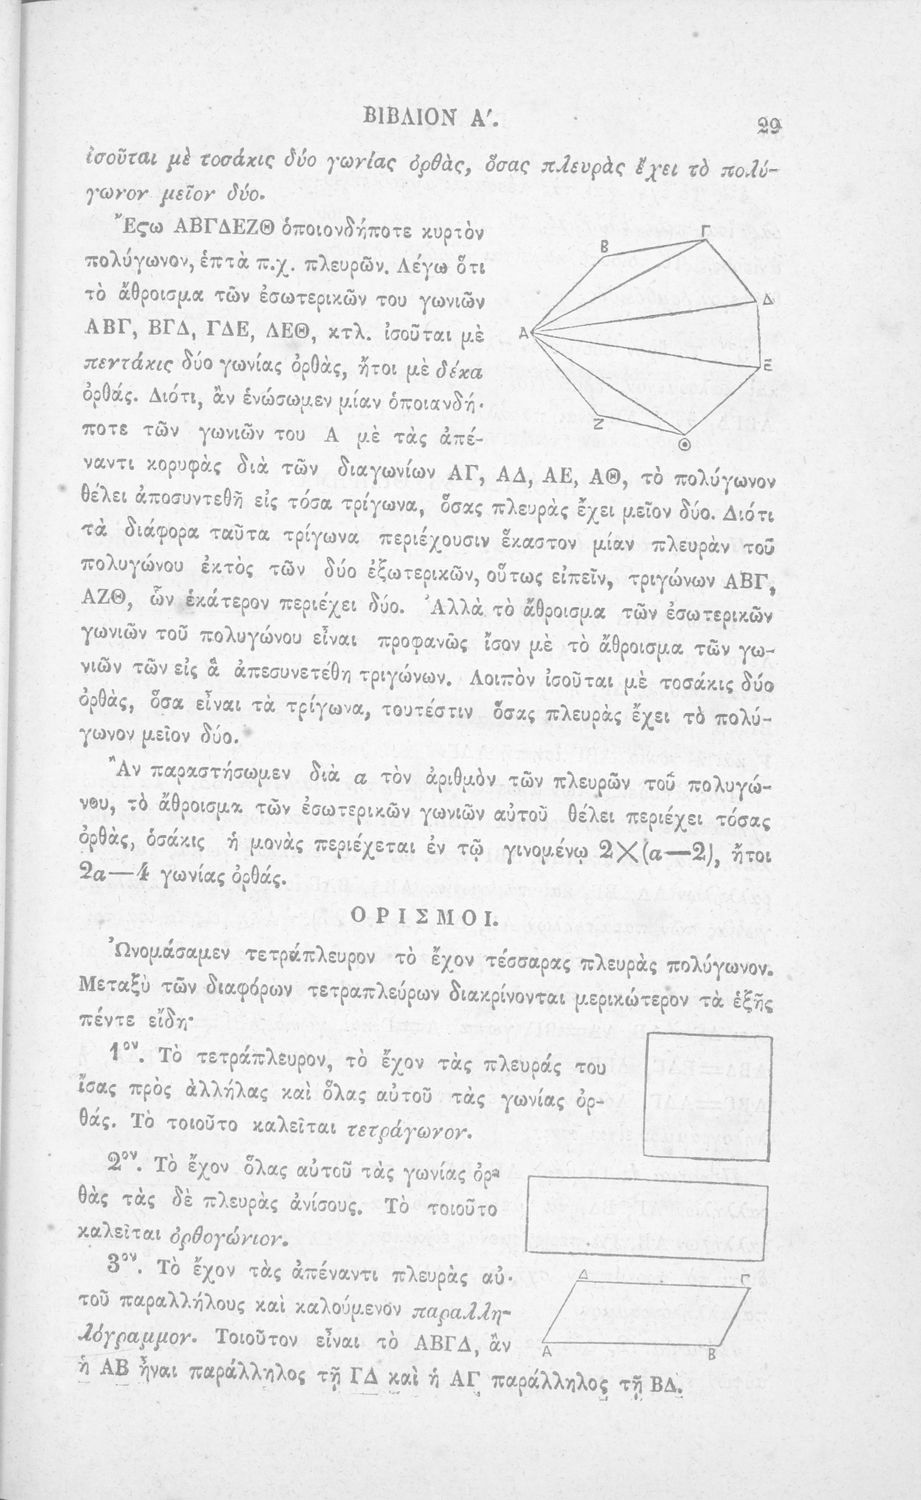 ΒΙΒΛΙΟΝ Α΄.
29
ἰσοῦται μὲ τοσάκις δύο γωνίας ὀρθὰς, ὅσας πλευρὰς ἔχει τὸ πολύ-
γωνον μεῖον δύο.
Ἔςω ΑΒΓΔΕΖΘ ὁποιονδήποτε κυρτὸν
πολύγωνον, ἑπτὰ π.χ. πλευρῶν. Λέγω ὅτι
τὸ ἄθροισμα τῶν ἐσωτερικῶν του γωνιῶν
ΑΒΓ, ΒΓΔ, ΓΔΕ, ΔΕΘ, κτλ. ἰσοῦται μὲ
πεντάκις δύο γωνίας ὀρθὰς, ἤτοι μὲ δέκα
ὀρθάς. Διότι, ἂν ἑνώσωμεν μίαν ὁποιανδή-
ποτε τῶν γωνιῶν του Α μὲ τὰς ἀπέ-
ναντι κορυφὰς διὰ τῶν διαγωνίων ΑΓ, ΑΔ, ΑΕ, ΑΘ, τὸ πολύγωνον
θέλει ἀποσυντεθῆ εἰς τόσα τρίγωνα, ὅσας πλευρὰς ἔχει μεῖον δύο. Διότι
τὰ διάφορα ταῦτα τρίγωνα περιέχουσιν ἕκαστον μίαν πλευρὰν τοῦ
πολυγώνου ἐκτὸς τῶν δύο ἐξωτερικῶν, οὕτως εἰπεῖν, τριγώνων ΑΒΓ,
ΑΖΘ, ὧν ἑκάτερον περιέχει δύο. Ἀλλὰ τὸ ἄθροισμα τῶν ἐσωτερικῶν
γωνιῶν τοῦ πολυγώνου εἶναι προφανῶς ἴσον μὲ τὸ ἄθροισμα τῶν γω-
νιῶν τῶν εἰς ἃ ἀπεσυνετέθη τριγώνων. Λοιπὸν ἰσοῦται μὲ τοσάκις δύο
ὀρθὰς, ὅσα εἶναι τὰ τρίγωνα, τουτέστιν ὅσας πλευρὰς ἔχει τὸ πολύ-
γωνον μεῖον δύο.
Ἂν παραστήσωμεν διὰ α τὸν ἀριθμὸν τῶν πλευρῶν τοῦ πολυγώ-
νου, τὸ ἄθροισμα τῶν ἐσωτερικῶν γωνιῶν αὐτοῦ θέλει περιέχει τόσας
ὀρθὰς, ὁσάκις ἡ μονὰς περιέχεται ἐν τῷ γινομένῳ 2×(α—2), ἤτοι
2α—4 γωνίας ὀρθάς.
ΟΡΙΣΜΟΙ.
Ὠνομάσαμεν τετράπλευρον τὸ ἔχον τέσσαρας πλευρὰς πολύγωνον.
Μεταξὺ τῶν διαφόρων τετραπλεύρων διακρίνονται μερικώτερον τὰ ἑξῆς
πέντε εἴδη·
1ον. Τὸ τετράπλευρον, τὸ ἔχον τὰς πλευράς του
ἴσας πρὸς ἀλλήλας καὶ ὅλας αὐτοῦ τὰς γωνίας ὀρ-
θάς. Τὸ τοιοῦτο καλεῖται τετράγωνον.
2ον. Τὸ ἔχον ὅλας αὐτοῦ τὰς γωνίας ὀρ-
θὰς τὰς δὲ πλευρὰς ἀνίσους. Τὸ τοιοῦτο
καλεῖται ὀρθογώνιον.
3ον. Τὸ ἔχον τὰς ἀπέναντι πλευρὰς αὐ-
τοῦ παραλλήλους καὶ καλούμενον παραλλη-
λόγραμμον. Τοιοῦτον εἶναι τὸ ΑΒΓΔ, ἂν
ἡ ΑΒ ἦναι παράλληλος τῇ ΓΔ καὶ ἡ ΑΓ παράλληλος τῇ ΒΔ.
Α
Β
Γ
Δ
Ε
Ζ
Θ
Δ
Γ
Α
Β